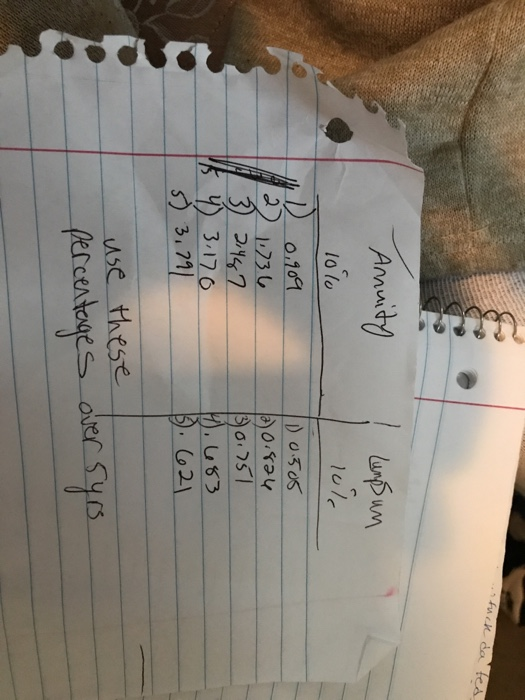 Annuity | Lump Sum
10% | 10%
1) 0.909 | 1) 0.505
2) 1.736 | 2) 0.826
3) 2.487 | 3) 0.751
4) 3.170 | 4) .683
5) 3.791 | 5) .621
use these
percentages over 5yrs